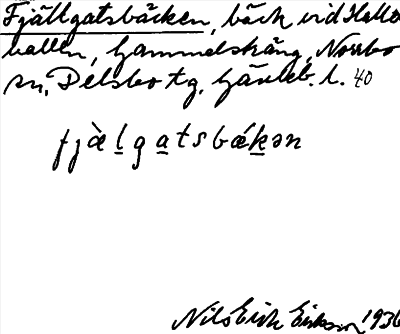 Fjällgatsbäcken, bäck vid Hallo
vallen, Gammelskäng, Norrbo
sn, Delsbo tg, Gävleb. l. 40
fjæ̀l̠ga̠tsbǽk̠ən
Nils Erik Eriksson 1936